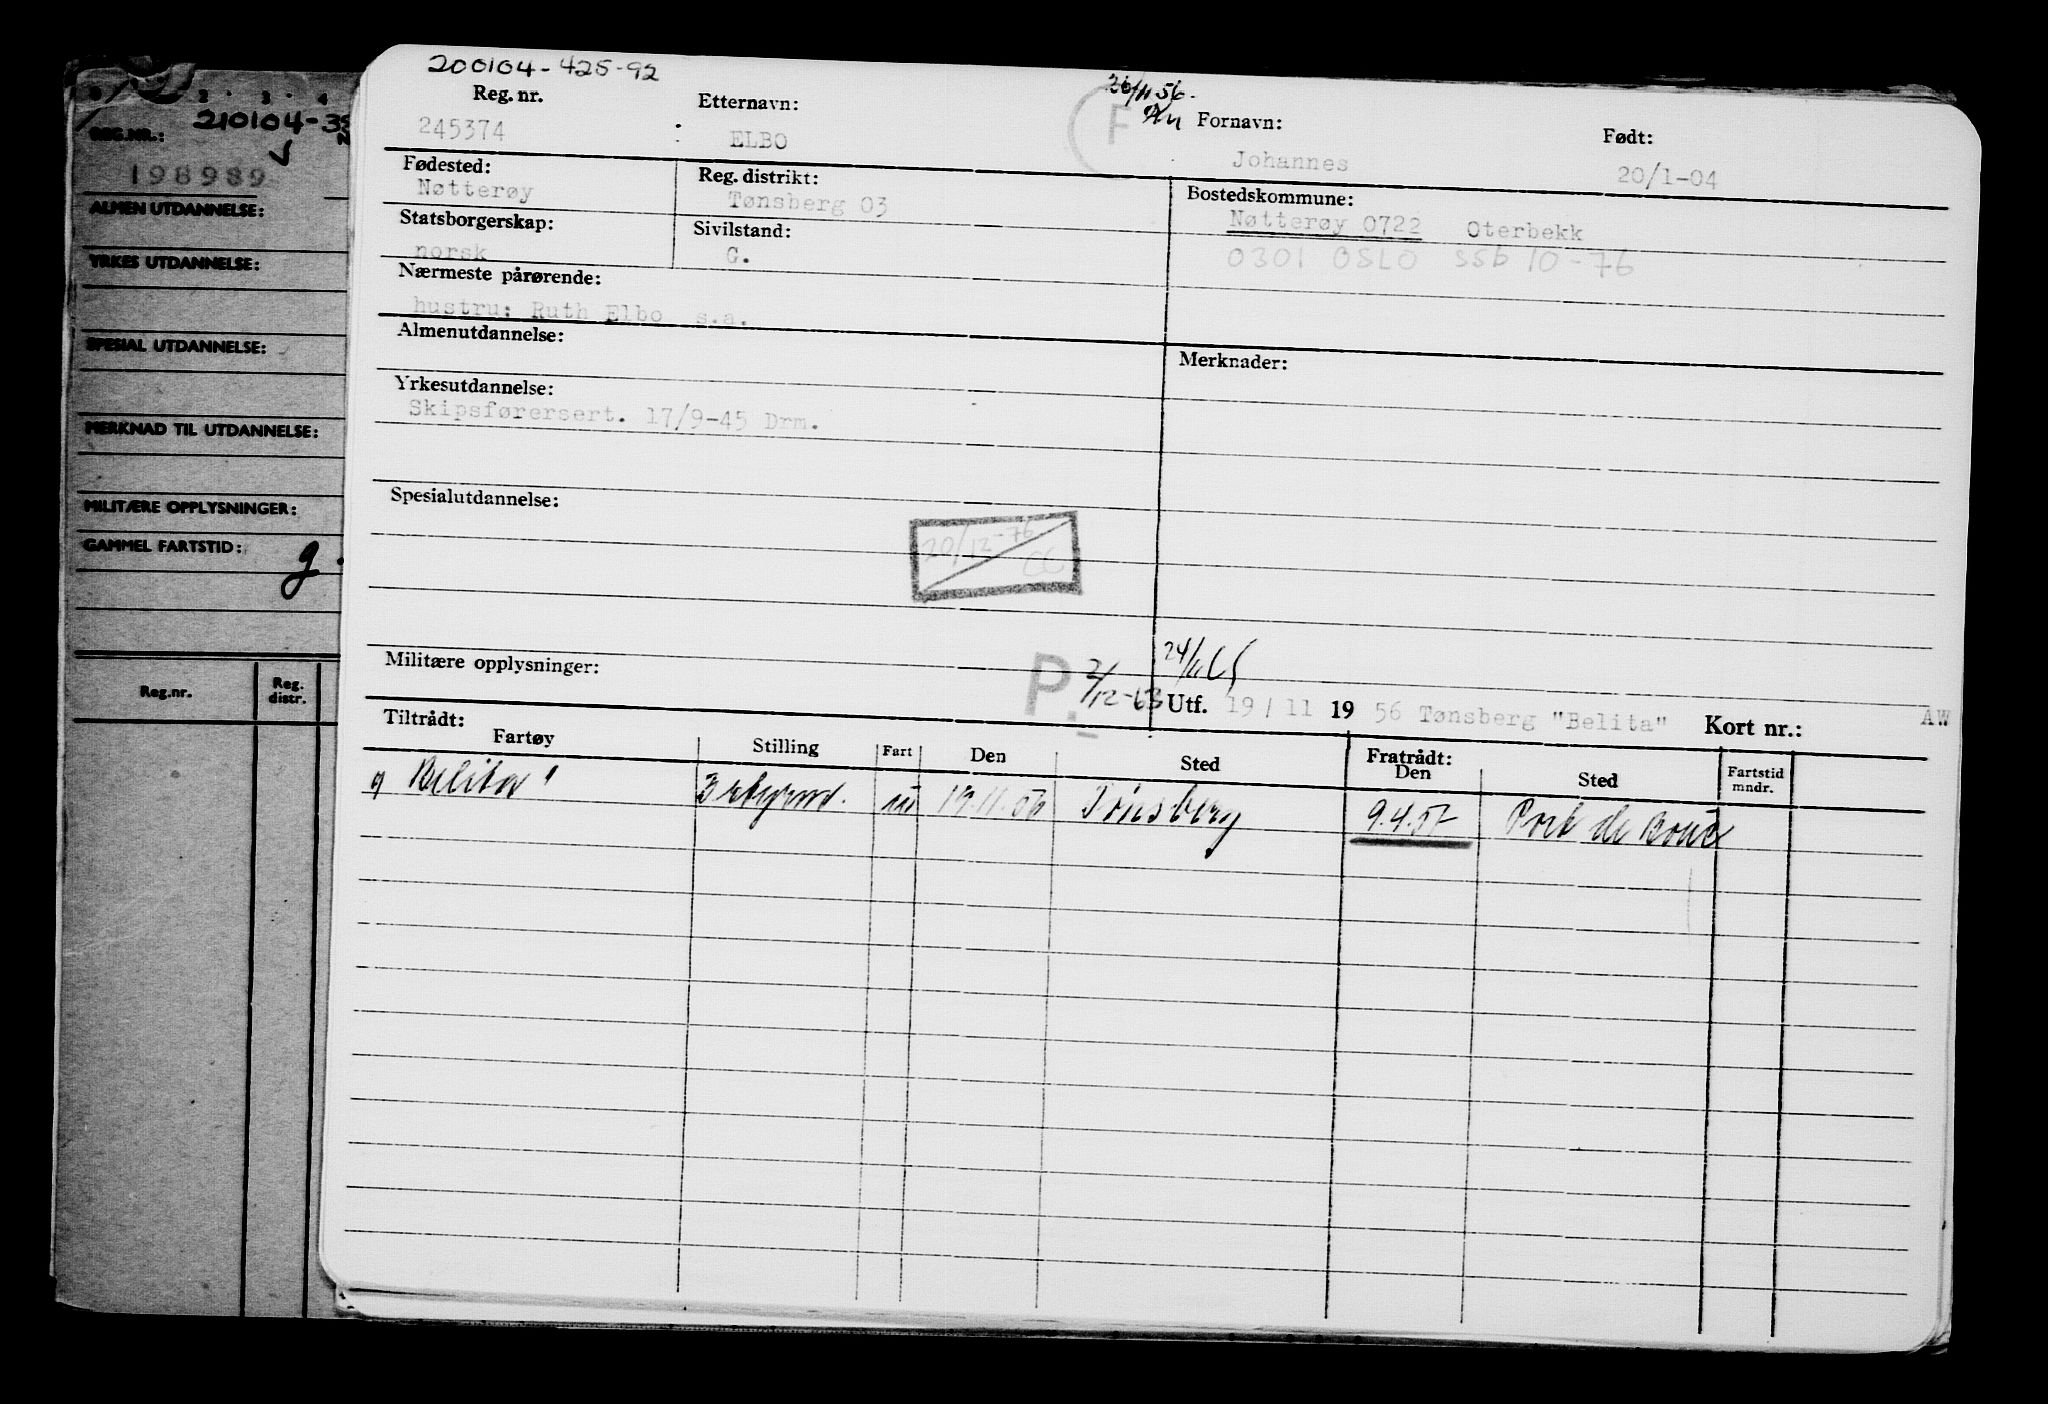 200104-425-92
26/11 56.
Reg. nr. Etternavn: F Fornavn: Født:
245374 ELBO Johannes 20/1-04
Fødested: Reg. distrikt: Bostedskommune:
Nøtterøy Tønsberg 03 Nøtterøy 0722 Oterbekk
Statsborgerskap: Sivilstand: 0301 OSLO SSB 10-76
norsk G.
Nærmeste pårørende:
hustru: Ruth Elbo s.a.
Almenutdannelse: Merknader:
Yrkesutdannelse:
Skipsførersert. 17/9-45 Drm.
Spesialutdannelse:
20/12-76
Militære opplysninger: P. 2/12-63 24/11 65
Utf. 19/11 1956 Tønsberg "Belita" Kort nr.: AW
Tiltrådt: Fratrådt:
Fartøy Stilling Fart Den Sted Den Sted Fartstid mndr.
"Belita" 3 styrmd. iu 19.11.56 Tønsberg 9.4.57 Port de Bouc
1 2 3 4
210104-
REG.NR.:
198989
ALMEN UTDANNELSE:
YRKES UTDANNELSE:
SPESIAL UTDANNELSE:
MERKNAD TIL UTDANNELSE:
MILITÆRE OPPLYSNINGER:
GAMMEL FARTSTID: g.
Reg.nr. Reg. distr.